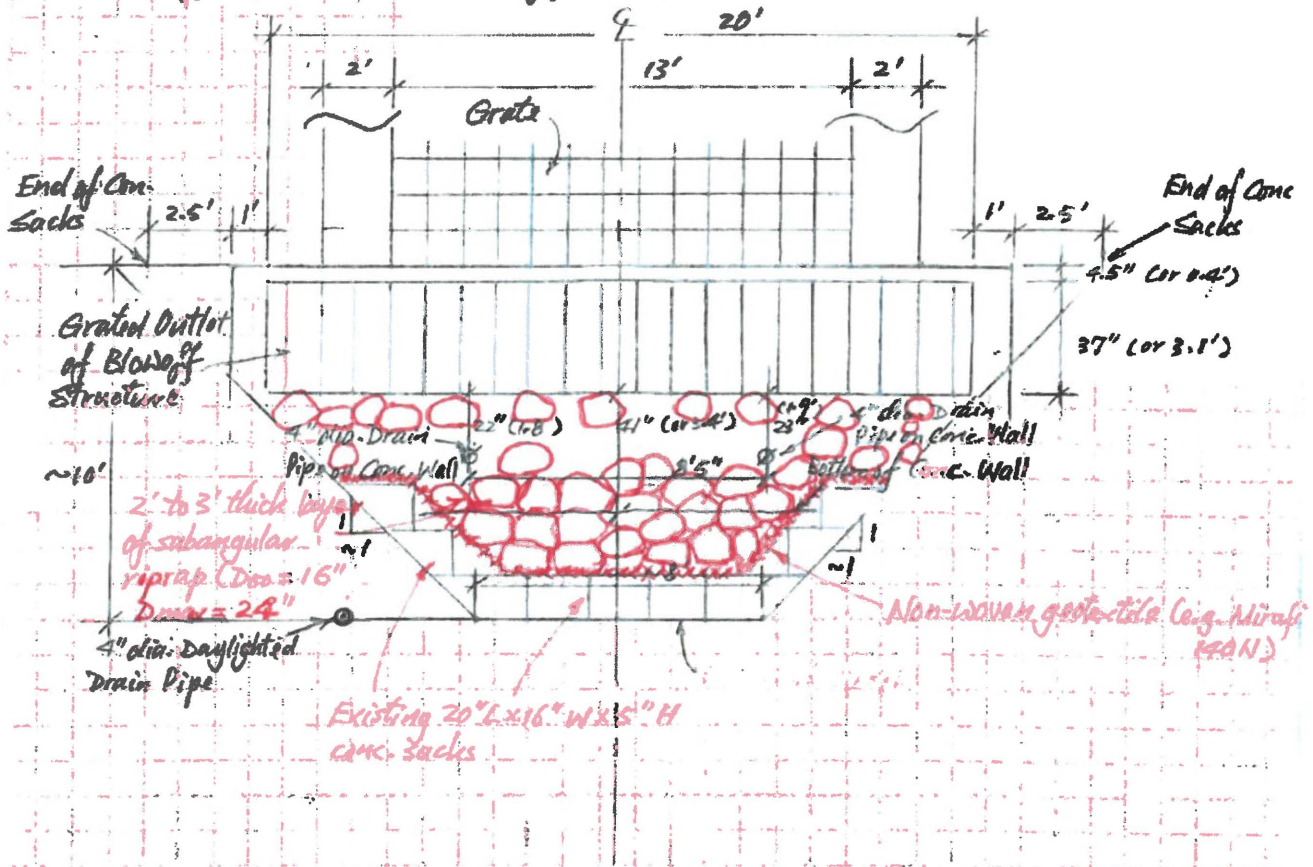 20'
2'
13'
2'
Grate
End of Con
Sacks
2.5'
1'
1'
2.5'
End of Conc
Sacks
4.5" (or 0.4')
37" (or 3.1')
Grated Outlet
of Blowoff
Structure
~10'
4" dia. Drain
Pipe on Conc. Wall
22" (1.8')
41" (or 3.4')
23"
4" dia. Drain
Pipe on Conc. Wall
Bottom of Conc. Wall
8'5"
2' to 3' thick layer
of subangular
riprap (D50 = 16"
Dmax = 24"
1
~1
1
~1
Non-woven geotextile (e.g. Mirafi
140N)
4" dia. Daylighted
Drain Pipe
Existing 20"L x 16"W x 5"H
conc. Sacks